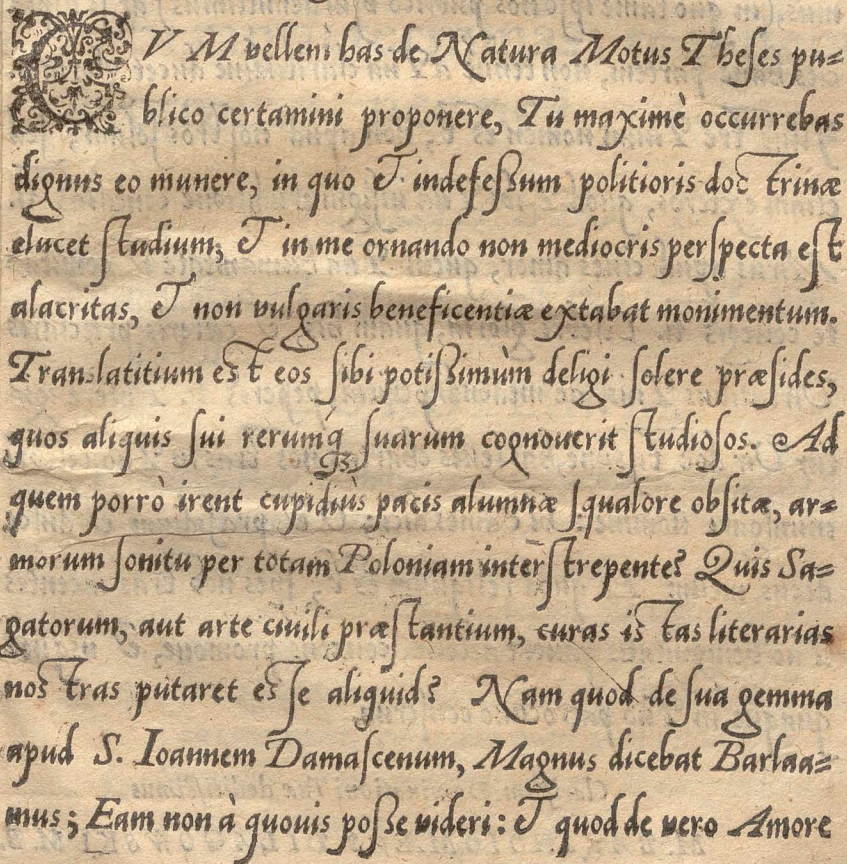 CVM vellem has de Natura Motus Theses pu=
blico certamini proponere, Tu maximè occurrebas
dignus eo munere, in quo & indefeſſum politioris doctrinæ
elucet ſtudium, & in me ornando non mediocris perſpecta eſt
alacritas, & non vulgaris beneficentiæ extabat monimentum.
Translatitium est eos ſibi potiſſimùm deligi ſolere præſides,
quos aliquis ſui rerumq́; ſuarum cognouerit ſtudioſos. Ad
quem porrò irent cupidiùs pacis alumnæ ſqualore obſitæ, ar=
morum ſonitu per totam Poloniam interſtrepente? Quis Sa=
gatorum, aut arte ciuili præſtantium, curas istas literarias
nostras putaret esſe aliquid? Nam quod de ſua gemma
apud S. Ioannem Damaſcenum, Magnus dicebat Barlaa=
mus; Eam non à quouis poſſe videri: & quod de vero Amore